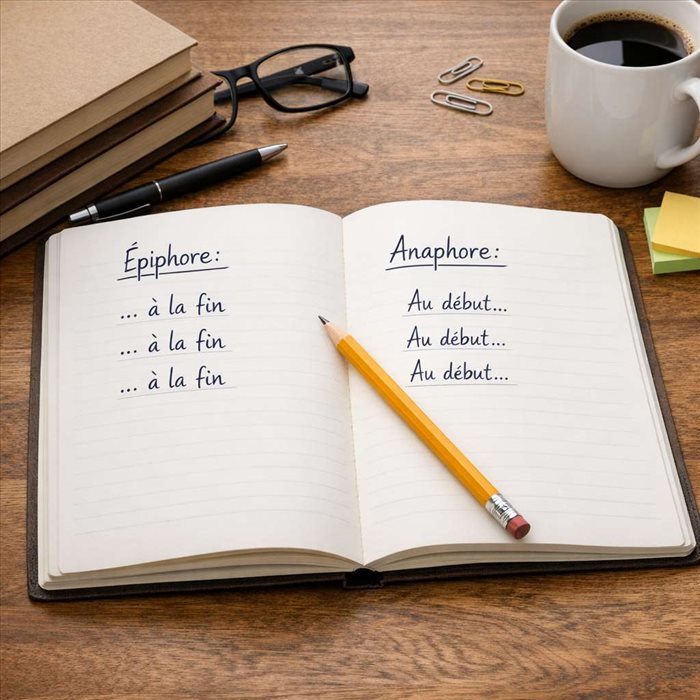 Épiphore:
... à la fin
... à la fin
... à la fin
Anaphore:
Au début...
Au début...
Au début...